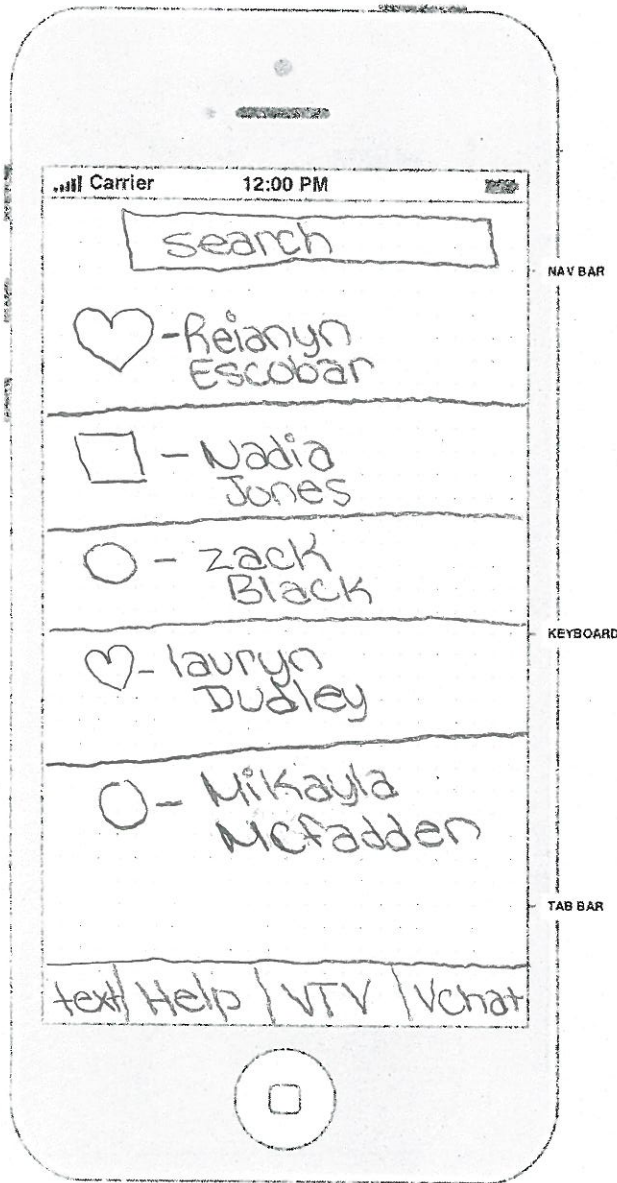 Carrier 12:00 PM
search
NAV BAR
-Reianyn
Escobar
- Nadia
Jones
- zack
Black
KEYBOARD
- lauryn
Dudley
- Mikayla
Mcfadden
TAB BAR
text Help VTV Vchat